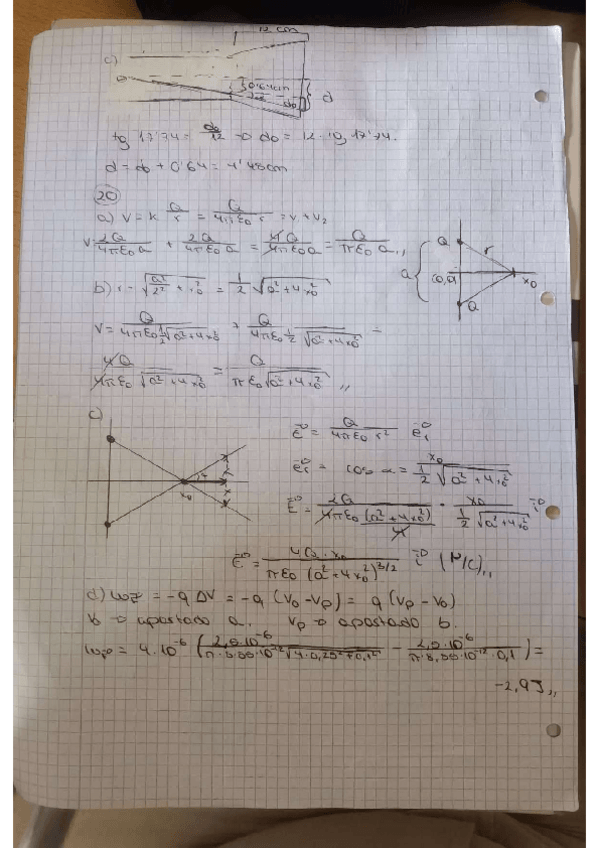 12 cm
c)
0'64cm
do
d
tg 17'74 = do/12 → do = 12 · tg 17'74.
d = do + 0'64 = 4'48cm
20
a) V = k Q/r = Q/4πε0 r = V1 + V2
V = 2Q/4πε0 a + 2Q/4πε0 a = 4Q/4πε0 a = Q/πε0 a ,,
Q
r
a
(0,0)
x0
Q
b) r = √(a²/2² + x0²) = 1/2 √(a² + 4x0²)
V = Q/(4πε0 1/2 √(a² + 4x0²)) + Q/(4πε0 1/2 √(a² + 4x0²)) =
4Q/(4πε0 √(a² + 4x0²)) = Q/(πε0 √(a² + 4x0²)) ,,
c)
x0
E = Q/(4πε0 r²) er
er = cos α = x0/(1/2 √(a² + 4x0²))
E = 2Q/(4πε0 (a² + 4x0²)/4) · x0/(1/2 √(a² + 4x0²)) i
E = 4Q · x0/(πε0 (a² + 4x0²)^3/2) i (N/C) ,,
= -q ΔV = -q (V0 - Vp) = q (Vp - V0)
V0 → apartado a. Vp → apartado b.
-2,9J ,,